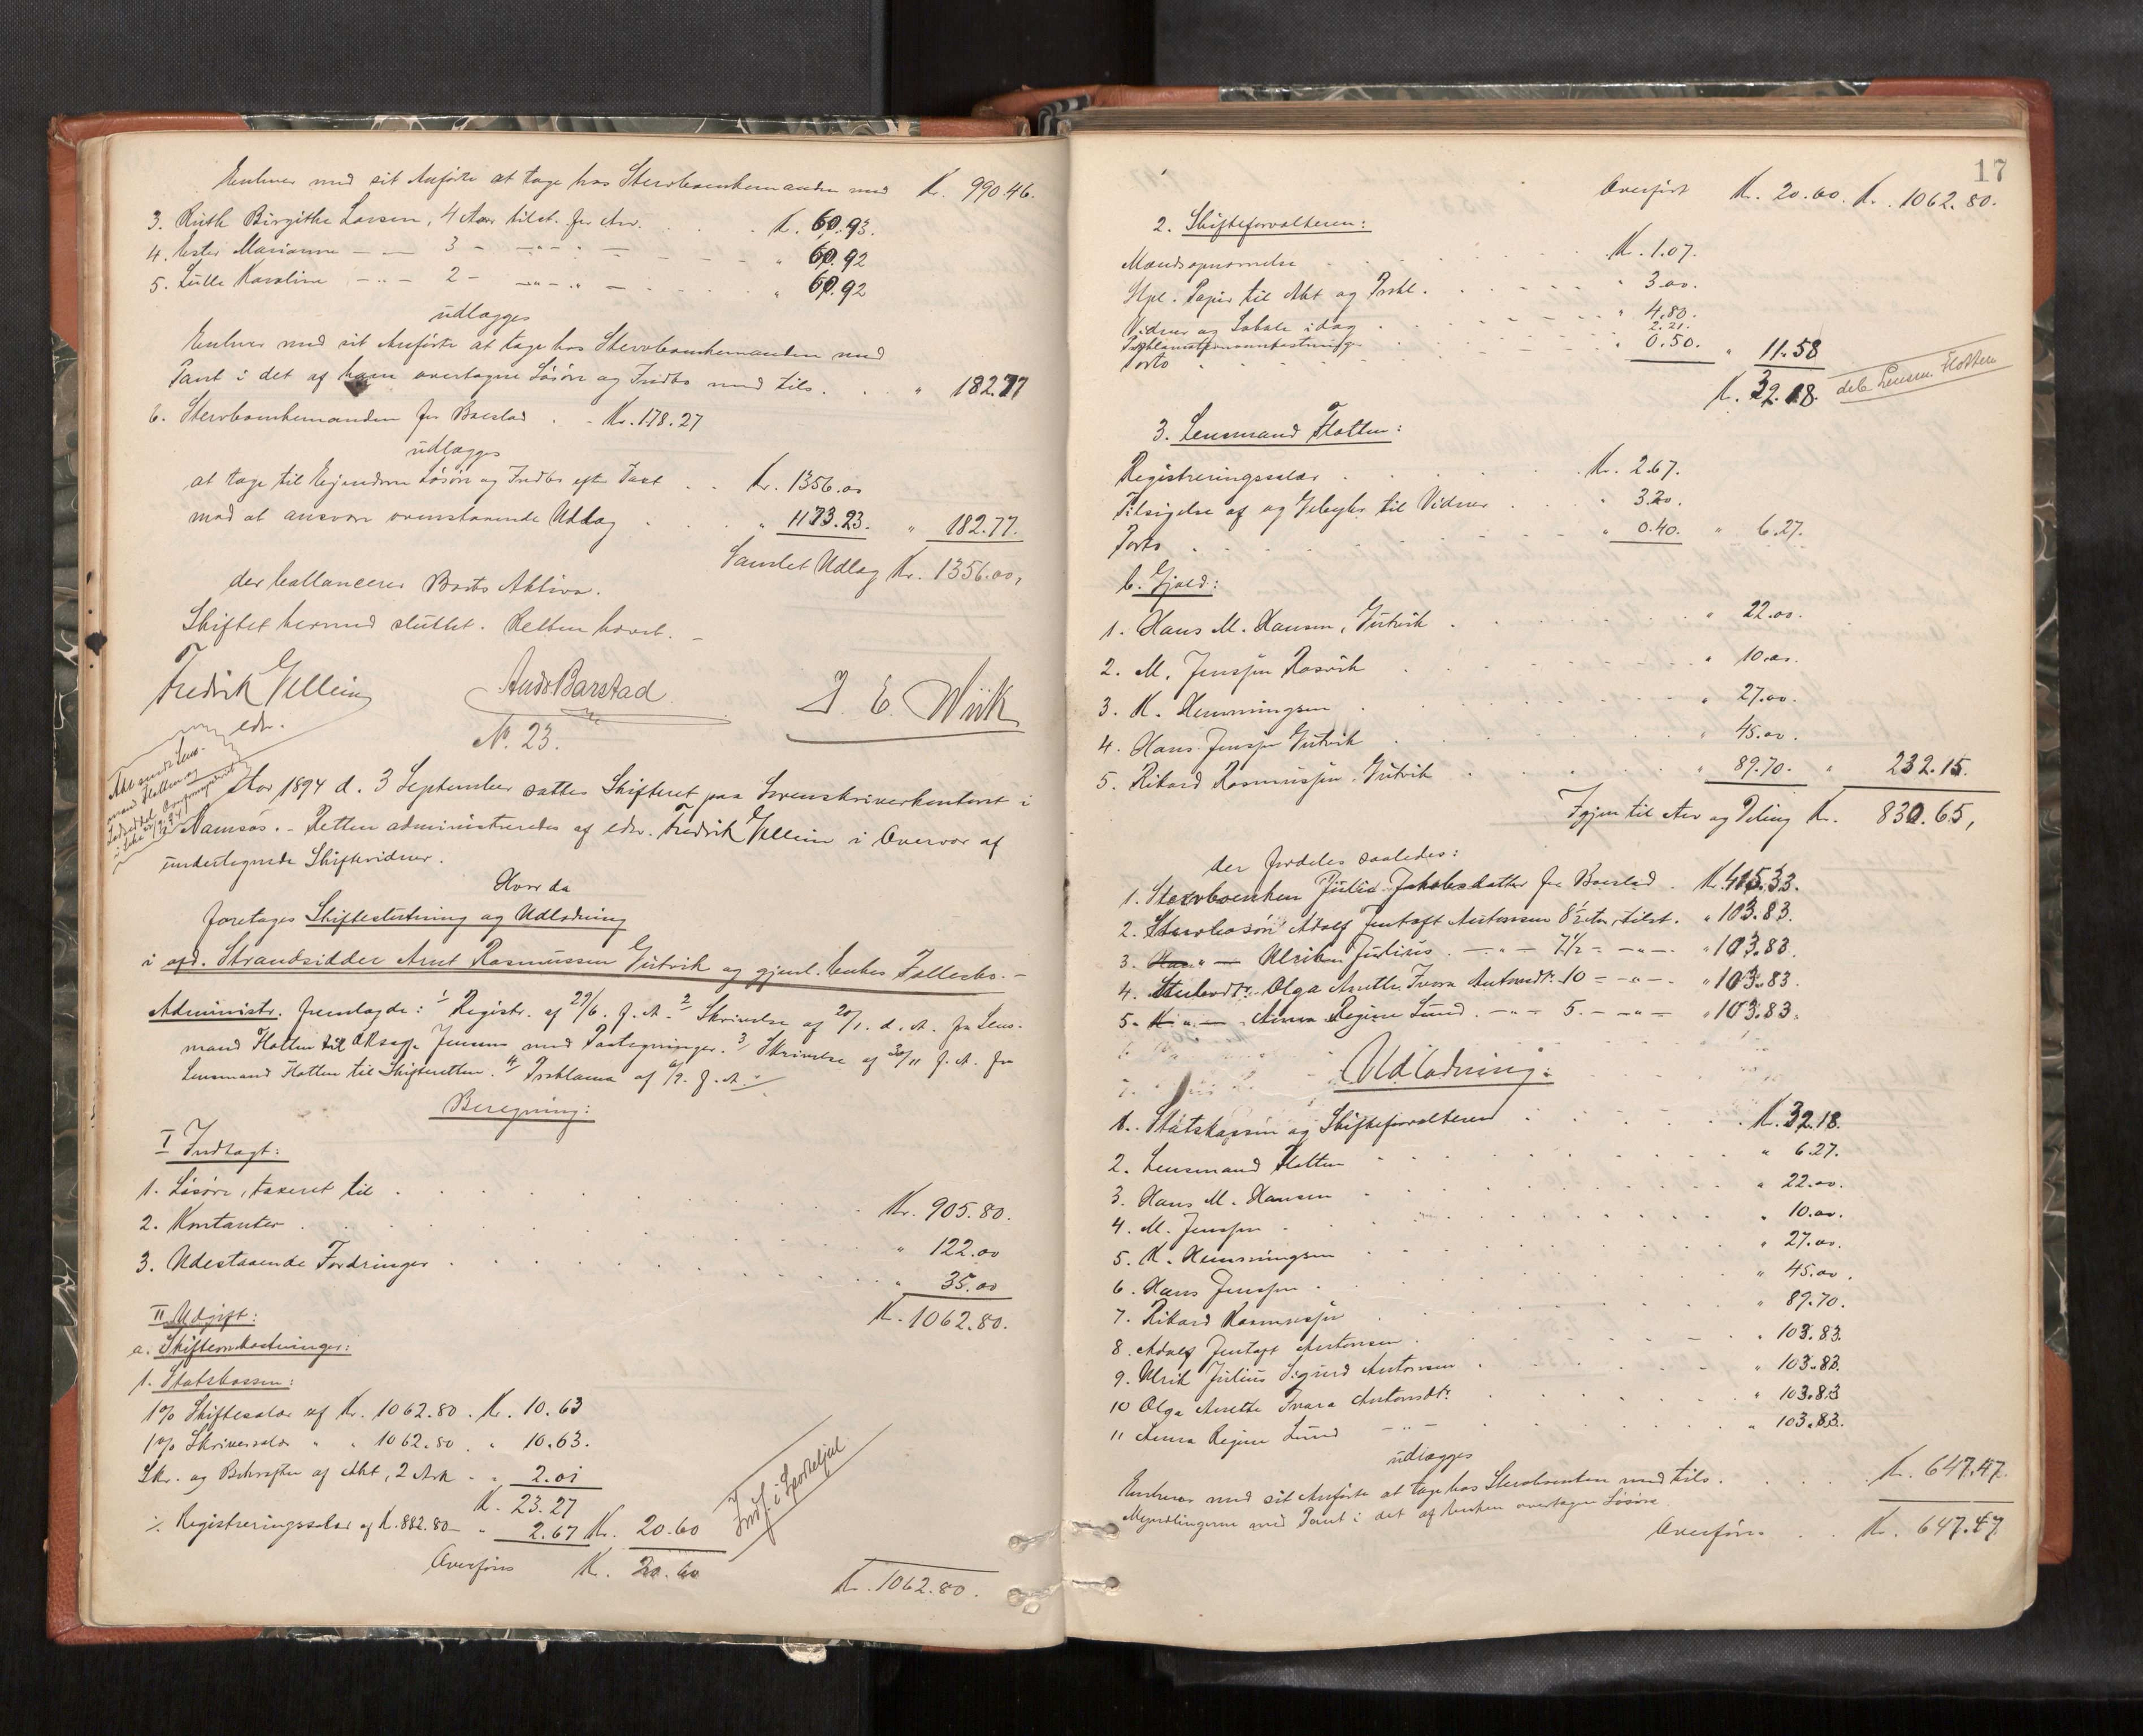 Enhver mod sit Anførte at tage hos Stervboenkemanden med Kr. 990.46.
3. Ruth Birgithe Larsen, 4 Aar tilst. for Arv. K. 60.93.
4. Ester Marianne — — 3 - — " — 60.92
5. Lulle Karoline — " — 2 - — " — " 60.92
udlægges
Enhver mod sit Anførte at tage hos Stervboenkemanden med
Pant i det af ham overtagne Løsøre og Indbo med tils. " 182.77
6. Stervboenkemanden for Boeslod . - Kr. 178.27
udlægges
at tage til Ejendom Løsøre og Indbo efter Taxt . . Kr. 1356.00
mod at ansvare ovenstaaende Udlæg . . " 1173.23. " 182.77.
Samlet Udlæg Kr. 1356.00,
der ballancerer Boets Aktiva.
Skiftet hermed sluttet. Retten hævet. —
Fredrik Vellein
edv.
Ands Barstad
J. E. Wiik
No. 23.
Aar 1894 d. 3 September sattes Skifteret paa Sorenskriverkontoret i
Namsos. - Retten administreredes af edv. Fredrik Vellein i Overvær af
undertegnede Skiftevidner.
Hvor da
foretages Skifteslutning og Udlodning
i afd. Strandsidder Arnt Rasmussen Gutvik og gjenl. Enkes Fællesbo. -
Administr. fremlagde: 1/ Registr. af 29/6. f. A. 2/ Skrivelse af 20/1. d. A. fra Lens-
mand Flotten til Jensen med Paategninger. 3/ Skrivelse af 30/11 f. A. fra
Lensmand Flotten til Skifteretten. 4/ Proklama af /9. f. A.
Beregning:
I Indtægt:
1. Løsøre, taxeret til . . . Kr. 905.80.
2. Kontanter . . . " 122.00
3. Udestaaende Fordringer . . . " 35.00
K. 1062.80.
II Udgift:
a. Skifteomkostninger:
1. Statskassen:
1% Skiftesalær af Kr. 1062.80. Kr. 10.63
1% Skriversalær " " 1062.80 . " 10.63.
Skr. og Bekræftn af Akt, 2 Ark - " 2.01
K. 23.27
./. Registreringssalær af K. 882.80 — " 2.67 Kr. 20.60
Indf. i Sporteljul
Overføres K. 20.60
K. 1062.80.
17
Overført K. 20.60. K. 1062.80.
2. Skifteforvalteren:
Mændsopnævnelse . . . K. 1.07.
Stpl. Papir til Akt og Prokl. . . . " 3.00.
Vidner og Lokale idag . . . " 4.80.
Proklamationsomkostninger 2.21.
Porto . . . " 0.50. " 11.58
K. 32.18. deb. Lensm. Flotten
3. Lensmand Flotten:
Registreringssalær . . . Kr. 2.67.
Tilsigelse af og Gebyhr til Vidner . . " 3.20.
Porto . . . " 0.40. " 6.27.
b. Gjæld:
1. Hans M. Hansen, Gutvik . . . " 22.00.
2. M. Jenssen Rosvik . . . " 10.00.
3. K. Hemmingsen . . . " 27.00.
4. Hans Jenssen Gutvik . . . " 45.00.
5. Rikard Rasmussen, Gutvik . . . " 89.70. " 232.15.
Igjen til Arv og Deling K. 830.65,
der fordeles saaledes:
1. Stervboenken Julie Jakobsdatter for Boeslod . K. 415.33.
2. Stervbosøn Adolf Jentoft Antonsen 8 1/2 Aar, tilst. " 103.83.
3. — " — Ulrik Julius — " — 7 1/2 - — " — " 103.83.
4. Stervbodtr. Olga Anette Ivara Antonsdtr. 10 - — " — " 103.83.
5. — " — Anna Regine Lund — " — 5 - — " — " 103.83.
Udlodning:
1. Statskassen og Skifteforvalteren . . . K. 32.18.
2. Lensmand Flotten " 6.27.
3. Hans M. Hansen " 22.00.
4. M. Jenssen " 10.00.
5. K. Hemmingsen " 27.00.
6. Hans Jenssen " 45.00.
7. Rikard Rasmussen " 89.70.
8. Adolf Jentoft Antonsen " 103.83.
9. Ulrik Julius Sigurd Antonsen " 103.83.
10 Olga Anette Ivara Antonsdtr. " 103.83
11 Anna Regine Lund — " — " 103.83.
udlægges
Enhver mod sit Anførte at tage hos Stervboenken med tils. . . K. 647.47.
Myndlingerne med Pant i det af Enken overtagne Løsøre.
Overføres . . K. 647.47